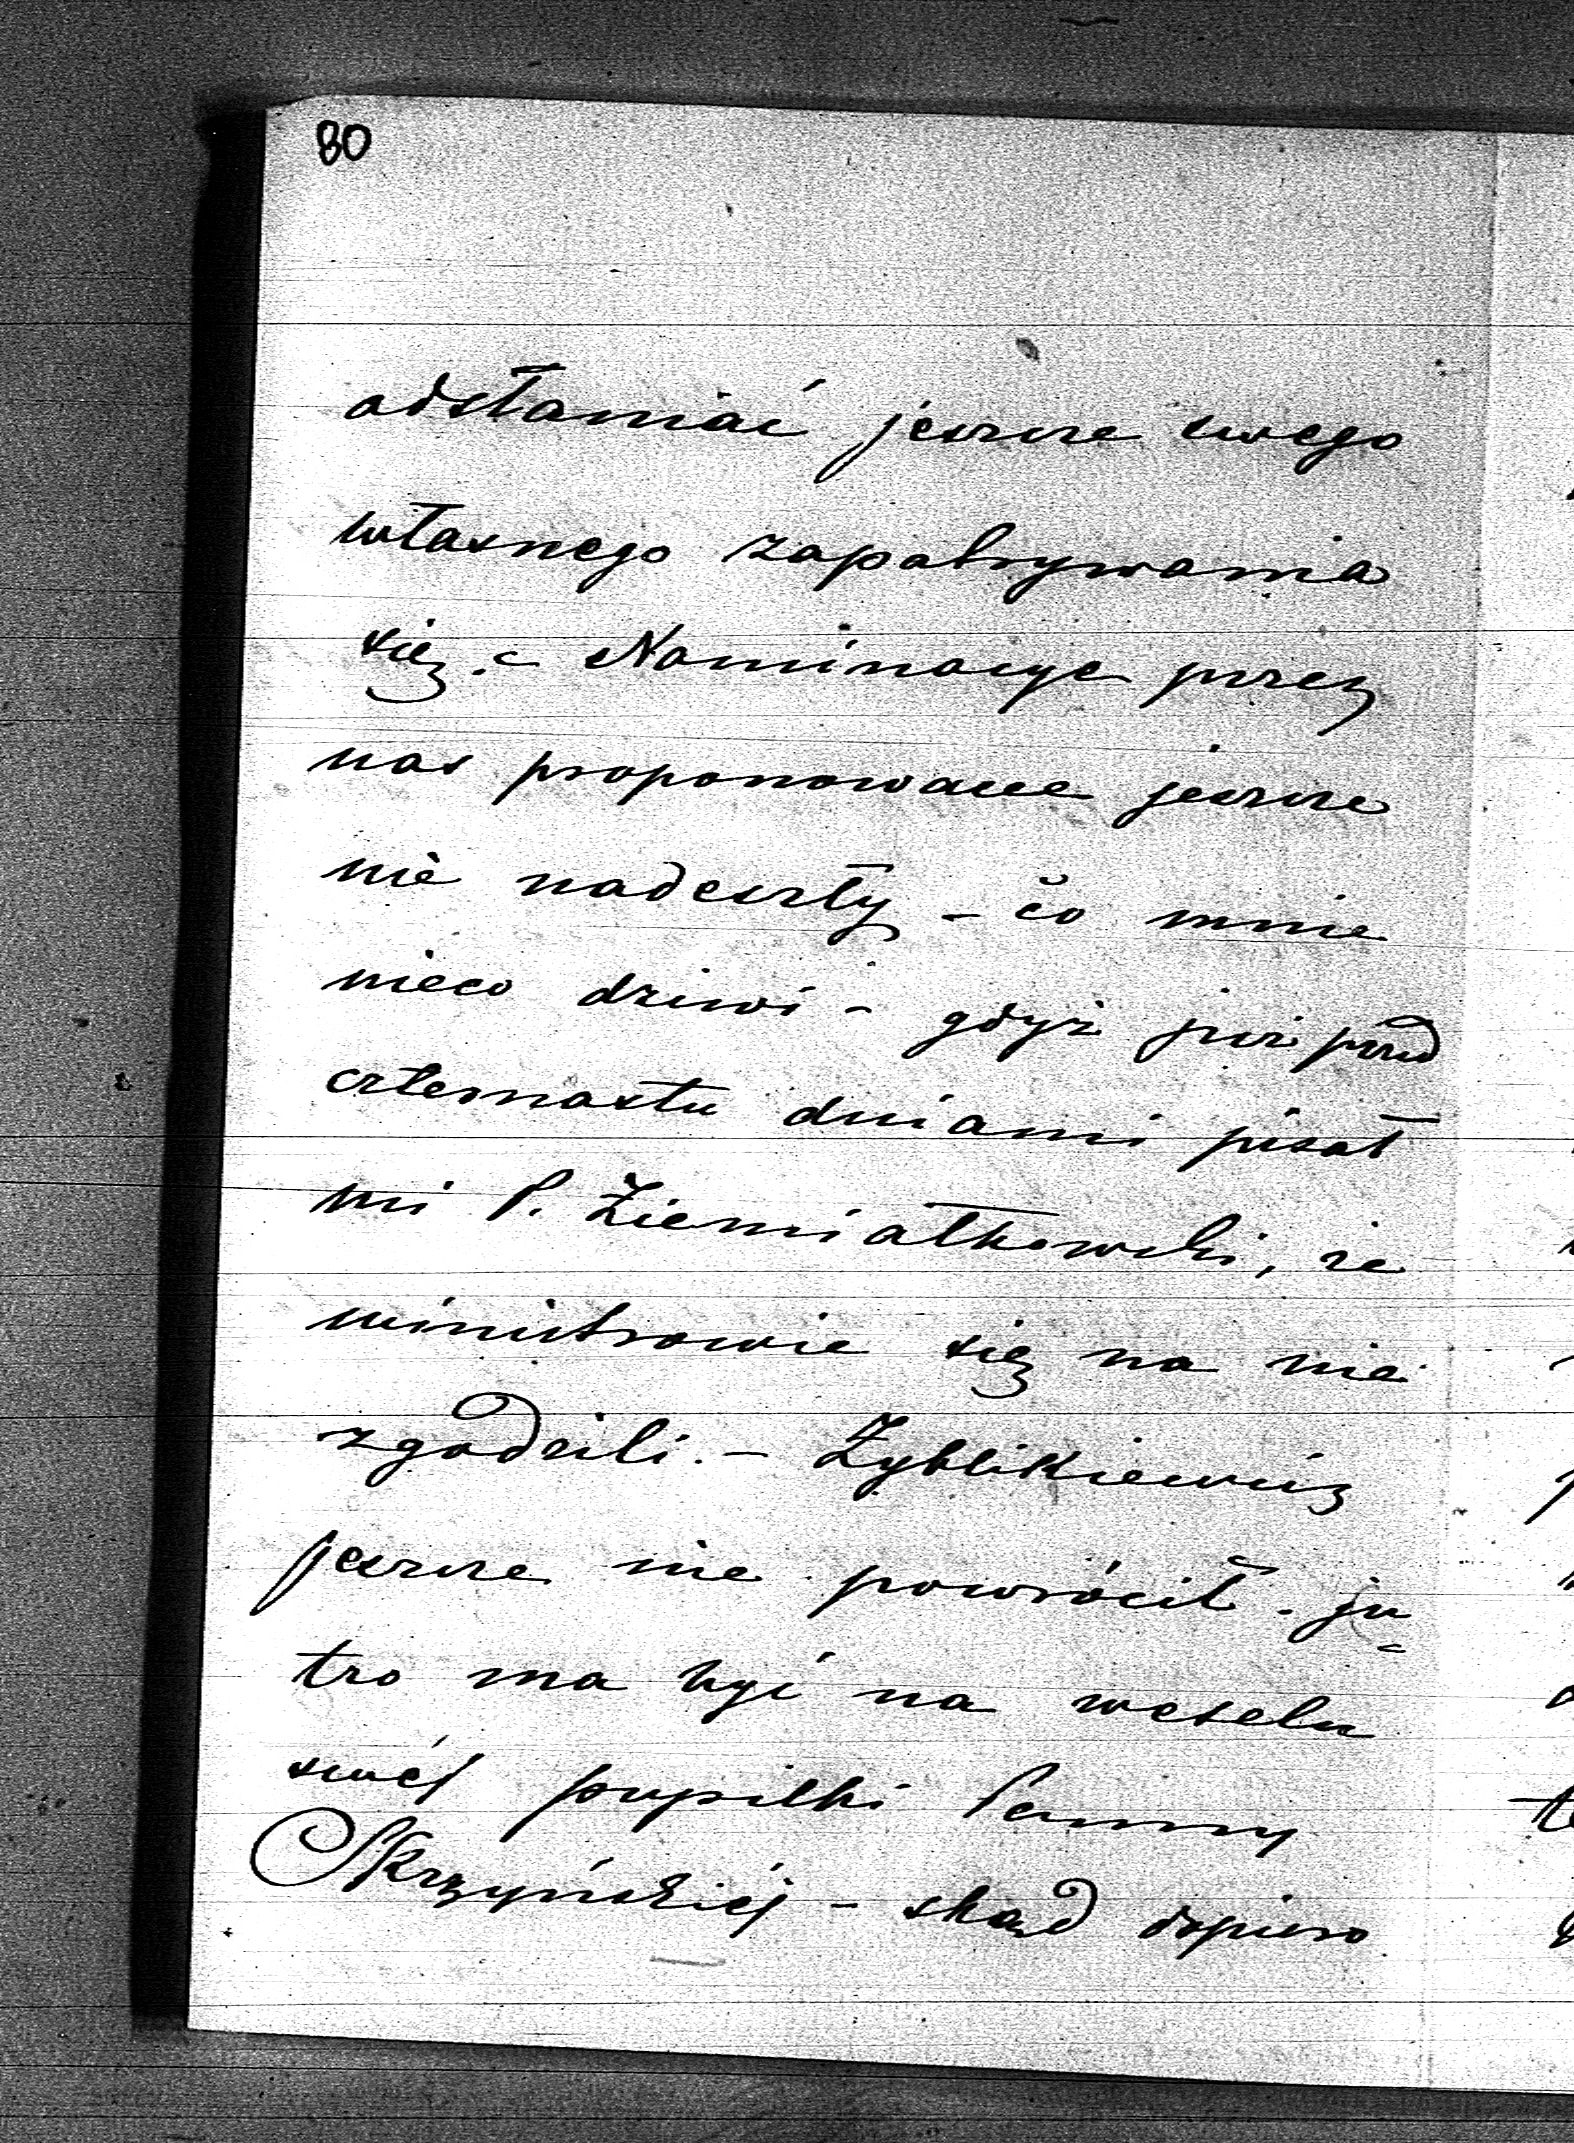 80
odsłaniać jeszcze swego
własnego zapatrywania
się. - Nominacye przez
nas proponowane jeszcze
nie nadeszły - co mnie
nieco dziwi - gdyż już przed
czternastu dniami pisał
mi P. Ziemiałkowski, że
ministrowie się na nie
zgodzili. - Zyblikiewicz
jeszcze nie powrócił. ju=
tro ma być na weselu
swéj pupilki Panny
Skrzyńskiéj - skąd dopiero